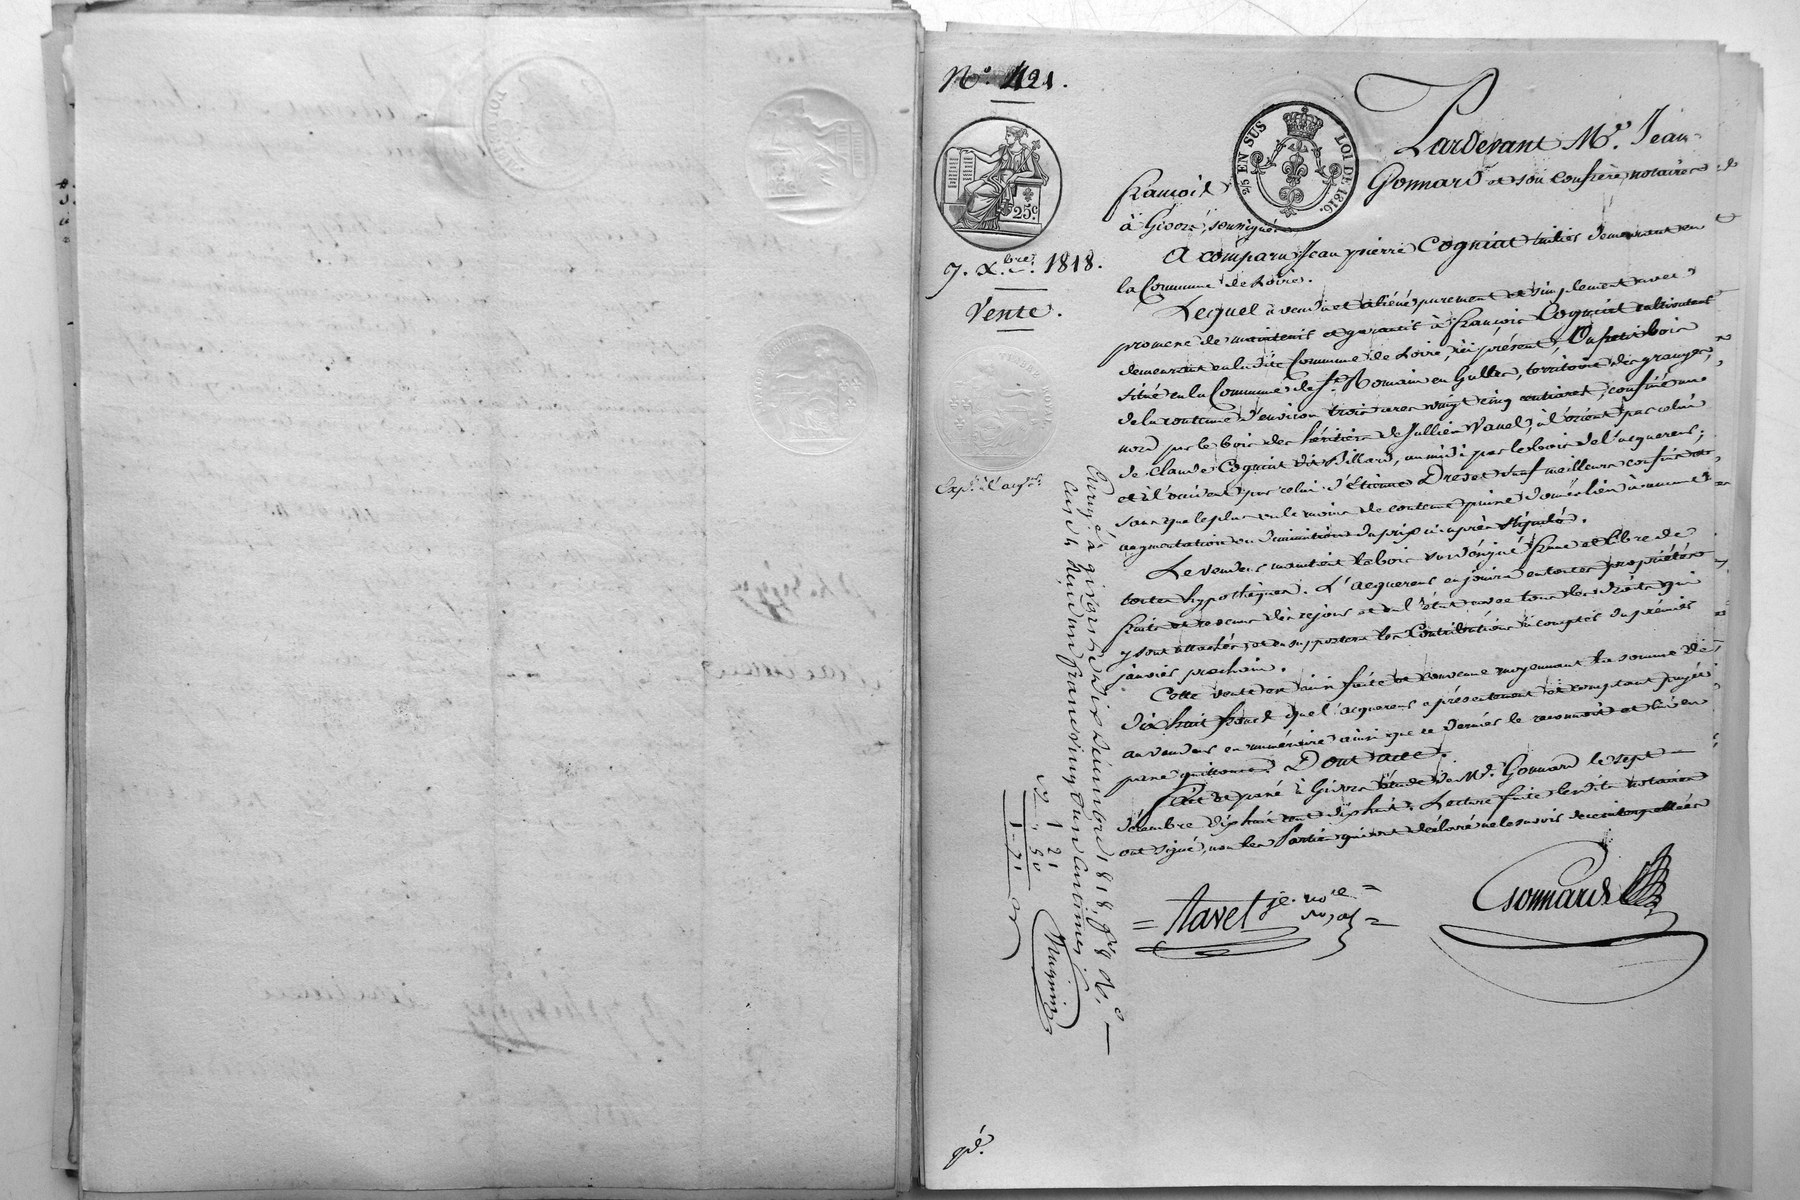 N.° 421.
25c
2/5 EN SUS LOI DE 1816.
7. X.bre 1818.
Vente.
Exp. à l'acq.r
Pardevant M.e Jean-
François Gonnard et son confrère notaires
à Givors, soussignés
A comparu Jean pierre Cogniat demeurant en
la Commune de Loire.
Lequel a vendu et aliéné purement et simplement avec
promesse de maintenir et garantir à François Cogniat cultivateur
demeurant en ladite Commune de Loire, ici présent, Un petit bois
situé en la Commune de S.t Romain en Galles, territoire des granges,
de la contenue d'environ trois ares vingt cinq centiares, confiné au
nord par le bois des héritiers de Jullien Vanel, à l'orient par celui
de Claude Cogniat dit Billard, au midi par le bois de l'acquereur;
et à l'occident par celui d'Etienne Drevet sauf meilleurs confins et
sans que le plus ou le moins de contenue puisse donner lieu à aucune
augmentation ou diminution du prix ci après stipulé.
Le vendeur maintient le bois sus désigné franc et libre de
toutes hypothèques. L'acquereur en jouira en toutes propriétés
fruits et revenus dès ce jour et en l'état avec tous les droits qui
y sont attachés, et en supportera les Contributions à compter du premier
janvier prochain.
Cette vente est ainsi faite et convenue moyennant la somme de
dix huit francs que l'acquereur a présentement et comptant payé
au vendeur en numéraire ainsi que ce dernier le reconnoit et lui en
passe quittance. Dont acte.
Fait et passé à Givors étude du M.e Gonnard le sept
décembre dix huit cent dix huit. Lecture faite lesdits notaires
ont signé, non les Parties qui ont déclaré ne le savoir de ce interpellées
= Navel je. no.re roy.al = Gonnard
Enreg. à givors le dix décembre 1818, f.o 8
un franc vingt un centimes
1 21
50
1 71